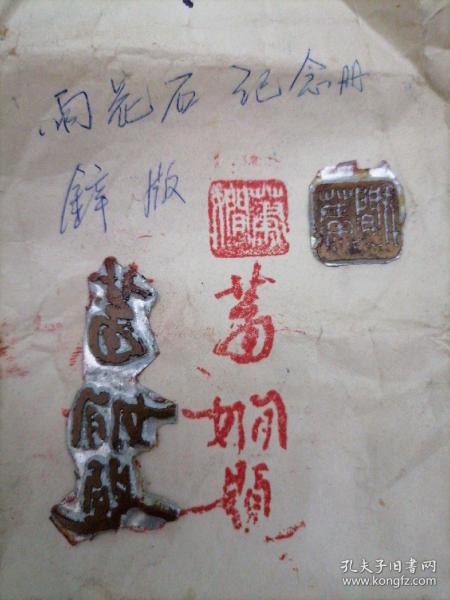 雨花石 纪念册
锌版
萧娴题
孔夫子旧书网
www.kongfz.com